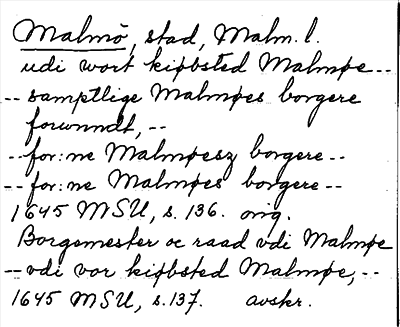 Malmö, stad, Malm. l.
udi wort kiøbsted Malmøe --
-- samptlige Malmøes borgere
forwnndt, --
-- for:ne Malmøesz borgere --
-- for:ne Malmøes borgere --
1645 MSU, s. 136. orig.
Borgemester oc raad vdi Malmøe
-- vdi vor kiøbsted Malmøe, --
1645 MSU, s. 137. avskr.